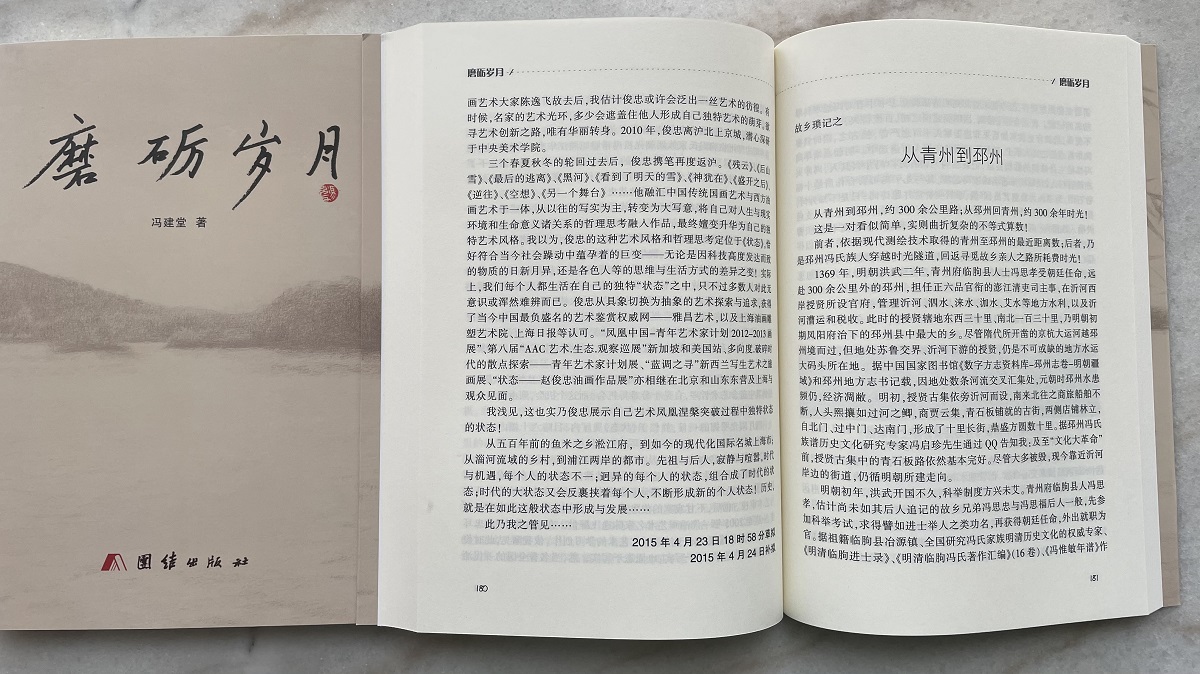 磨砺岁月
冯建堂 著
团结出版社
磨砺岁月
画艺术大家陈逸飞故去后,我估计俊忠或许会泛出一丝艺术的彷徨。有
时候,名家的艺术光环,多少会遮盖住他人形成自己独特艺术的萌芽。
寻艺术创新之路,唯有华丽转身。2010 年,俊忠离沪北上京城,潜心深研
于中央美术学院。
三个春夏秋冬的轮回过去后，俊忠携笔再度返沪。《残云》、《后山
雪》、《最后的逃离》、《黑河》、《看到了明天的雪》、《神犹在》、《盛开之后》、
《逆往》、《空想》、《另一个舞台》……他融汇中国传统国画艺术与西方油
画艺术于一体,从以往的写实为主,转变为大写意,将自己对人生与现实
环境和生命意义诸关系的哲理思考融人作品,最终嬗变升华为自己的独
特艺术风格。我以为,俊忠的这种艺术风格和哲理思考定位于《状态》,恰
好符合当今社会躁动中蕴孕着的巨变——无论是因科技高度发达而致
的物质的日新月异,还是各色人等的思维与生活方式的差异之变!实际
上,我们每个人都生活在自己的独特“状态”之中,只不过多数人对此无
意识或浑然难辨而已。俊忠从具象切换为抽象的艺术探索与追求,获得
了当今中国最负盛名的艺术鉴赏权威网——雅昌艺术,以及上海油画雕
塑艺术院、上海日报等认可。“凤凰中国-青年艺术家计划 2012-2013 画
展”、第八届“AAC 艺术.生态.观察巡展”新加坡和美国站、多向度.破碎时
代的散点探索——青年艺术家计划展、“蓝调之寻”新西兰写生艺术之旅
画展、“状态——赵俊忠油画作品展”亦相继在北京和山东东营及上海与
观众见面。
我浅见,这也实乃俊忠展示自己艺术凤凰涅槃突破过程中独特状态
的状态!
从五百年前的鱼米之乡淞江府，到如今的现代化国际名城上海市;
从淄河流域的乡村,到浦江两岸的都市。先祖与后人,寂静与喧嚣,时代
与机遇,每个人的状态不一;迥异的每个人的状态,组合成了时代的状
态;时代的大状态又会反裹挟着每个人,不断形成新的个人状态!历史,
就是在如此这般状态中形成与发展……
此乃我之管见……
2015 年 4 月 23 日 18 时 58 分草拟
2015 年 4 月 24 日补拟
180
磨砺岁月
故乡琐记之
从青州到邳州
从青州到邳州,约 300 余公里路;从邳州回青州,约 300 余年时光!
这是一对看似简单,实则曲折复杂的不等式算数!
前者,依据现代测绘技术取得的青州至邳州的最近距离数;后者,乃
是邳州冯氏族人穿越时光隧道,回返寻觅故乡亲人之路所耗费时光!
1369 年,明朝洪武二年,青州府临朐县人士冯思孝受朝廷任命,远
赴 300 余公里外的邳州,担任正六品官衔的澎江清吏司主事,在沂河西
岸授贤所设官府,管理沂河、泗水、涞水、泇水、艾水等地方水利,以及沂
河漕运和税收。此时的授贤辖地东西三十里、南北一百三十里,乃明朝初
期凤阳府治下的邳州县中最大的乡。尽管隋代所开凿的京杭大运河越邳
州境而过,但地处苏鲁交界、沂河下游的授贤,仍是不可或缺的地方水运
大码头所在地。据中国国家图书馆《数字方志资料库-邳州志卷-明朝疆
域》和邳州地方志书记载,因地处数条河流交叉汇集处,元朝时邳州水患
频仍,经济凋敝。明初,授贤古集依旁沂河而设,南来北往之商旅船舶不
断,人头熙攘如过河之鲫,商贾云集,青石板铺就的古街,两侧店铺林立,
自北门、过中门、达南门,形成了十里长街,鼎盛方圆数十里。据邳州冯氏
族谱历史文化研究专家冯启珍先生通过 QQ 告知我;及至“文化大革命”
前,授贤古集中的青石板路依然基本完好。尽管大多被毁,现今靠近沂河
岸边的街道,仍循明朝所建走向。
明朝初年,洪武开国不久,科举制度方兴未艾。青州府临朐县人冯思
孝,估计尚未如其后人追记的故乡兄弟冯思忠与冯思福后人一般,先参
加科举考试,求得譬如进士举人之类功名,再获得朝廷任命,外出就职为
官。据祖籍临朐县冶源镇、全国研究冯氏家族明清历史文化的权威专家、
《明清临朐进士录》、《明清临朐冯氏著作汇编》(16 卷)、《冯惟敏年谱》作
181